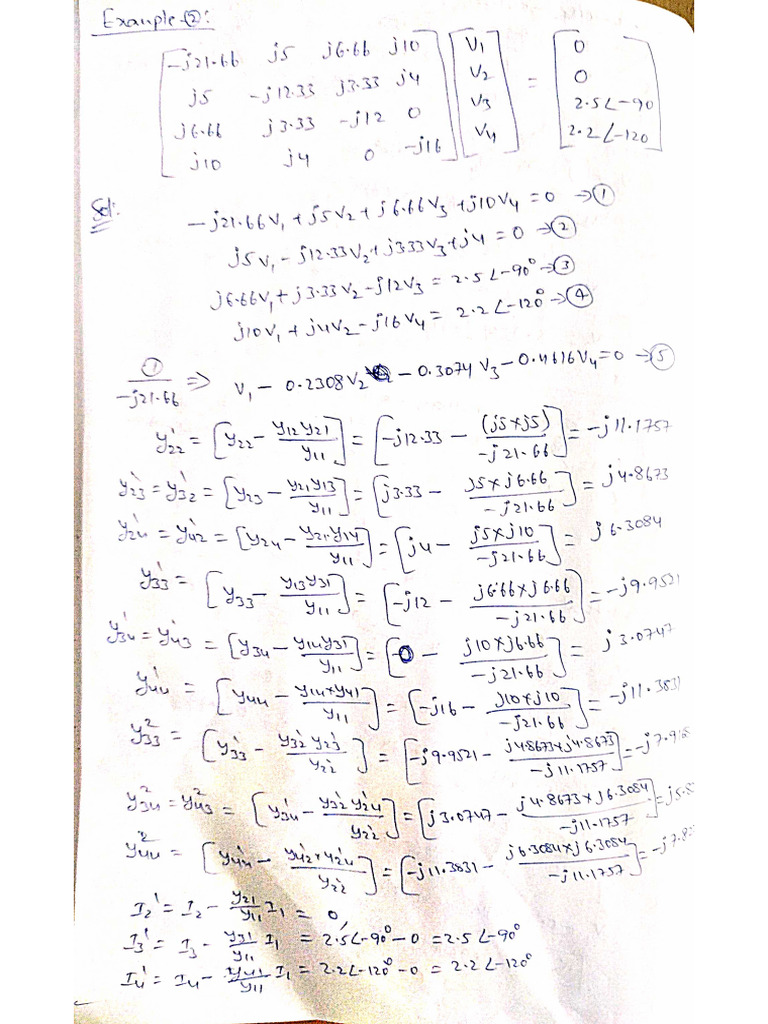 Example-②:
[-j21.66 j5 j6.66 j10] [V1] [0]
[j5 -j12.33 j3.33 j4] [V2] = [0]
[j6.66 j3.33 -j12 0] [V3] [2.5∠-90]
[j10 j4 0 -j16] [V4] [2.2∠-120]
Sol:
-j21.66V1 + j5V2 + j6.66V3 + j10V4 = 0 → ①
j5V1 - j12.33V2 + j3.33V3 + j4 = 0 → ②
j6.66V1 + j3.33V2 - j12V3 = 2.5∠-90° → ③
j10V1 + j4V2 - j16V4 = 2.2∠-120° → ④
①/-j21.66 ⇒ V1 - 0.2308V2 - 0.3074V3 - 0.4616V4 = 0 → ⑤
y22' = [y22 - y12 y21/y11] = [-j12.33 - (j5×j5)/-j21.66] = -j11.1757
y23' = y32' = [y23 - y21 y13/y11] = [j3.33 - j5×j6.66/-j21.66] = j4.8673
y24' = y42' = [y24 - y21 y14/y11] = [j4 - j5×j10/-j21.66] = j6.3084
y33' = [y33 - y13 y31/y11] = [-j12 - j6.66×j6.66/-j21.66] = -j9.9521
y34' = y43' = [y34 - y14 y31/y11] = [0 - j10×j6.66/-j21.66] = j3.0747
y44' = [y44 - y14×y41/y11] = [-j16 - j10×j10/-j21.66] = -j11.3831
y33² = [y33' - y32' y23'/y22'] = [-j9.9521 - j4.8673×j4.8673/-j11.1757] = -j7.9
y34² = y43² = [y34' - y32' y24'/y22'] = [j3.0747 - j4.8673×j6.3084/-j11.1757] = j5.8
y44² = [y44' - y42'×y24'/y22'] = [-j11.3831 - j6.3084×j6.3084/-j11.1757] = -j7.8
I2' = I2 - y21/y11 I1 = 0
I3' = I3 - y31/y11 I1 = 2.5∠-90° - 0 = 2.5∠-90°
I4' = I4 - y41/y11 I1 = 2.2∠-120° - 0 = 2.2∠-120°